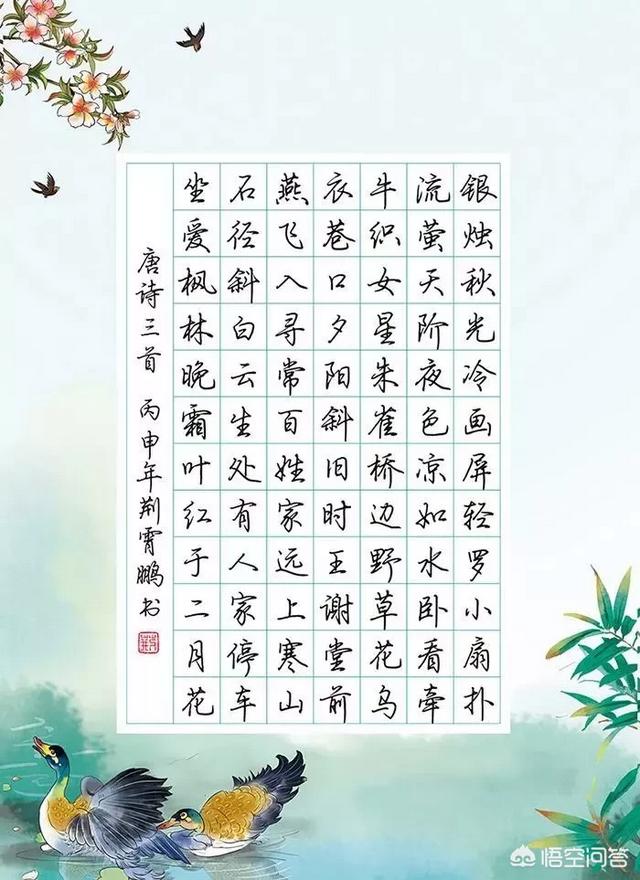 银烛秋光冷画屏轻罗小扇扑
流萤天阶夜色凉如水卧看牵
牛织女星朱雀桥边野草花乌
衣巷口夕阳斜旧时王谢堂前
燕飞入寻常百姓家远上寒山
石径斜白云生处有人家停车
坐爱枫林晚霜叶红于二月花
唐诗三首 丙申年荆霄鹏书
悟空问答